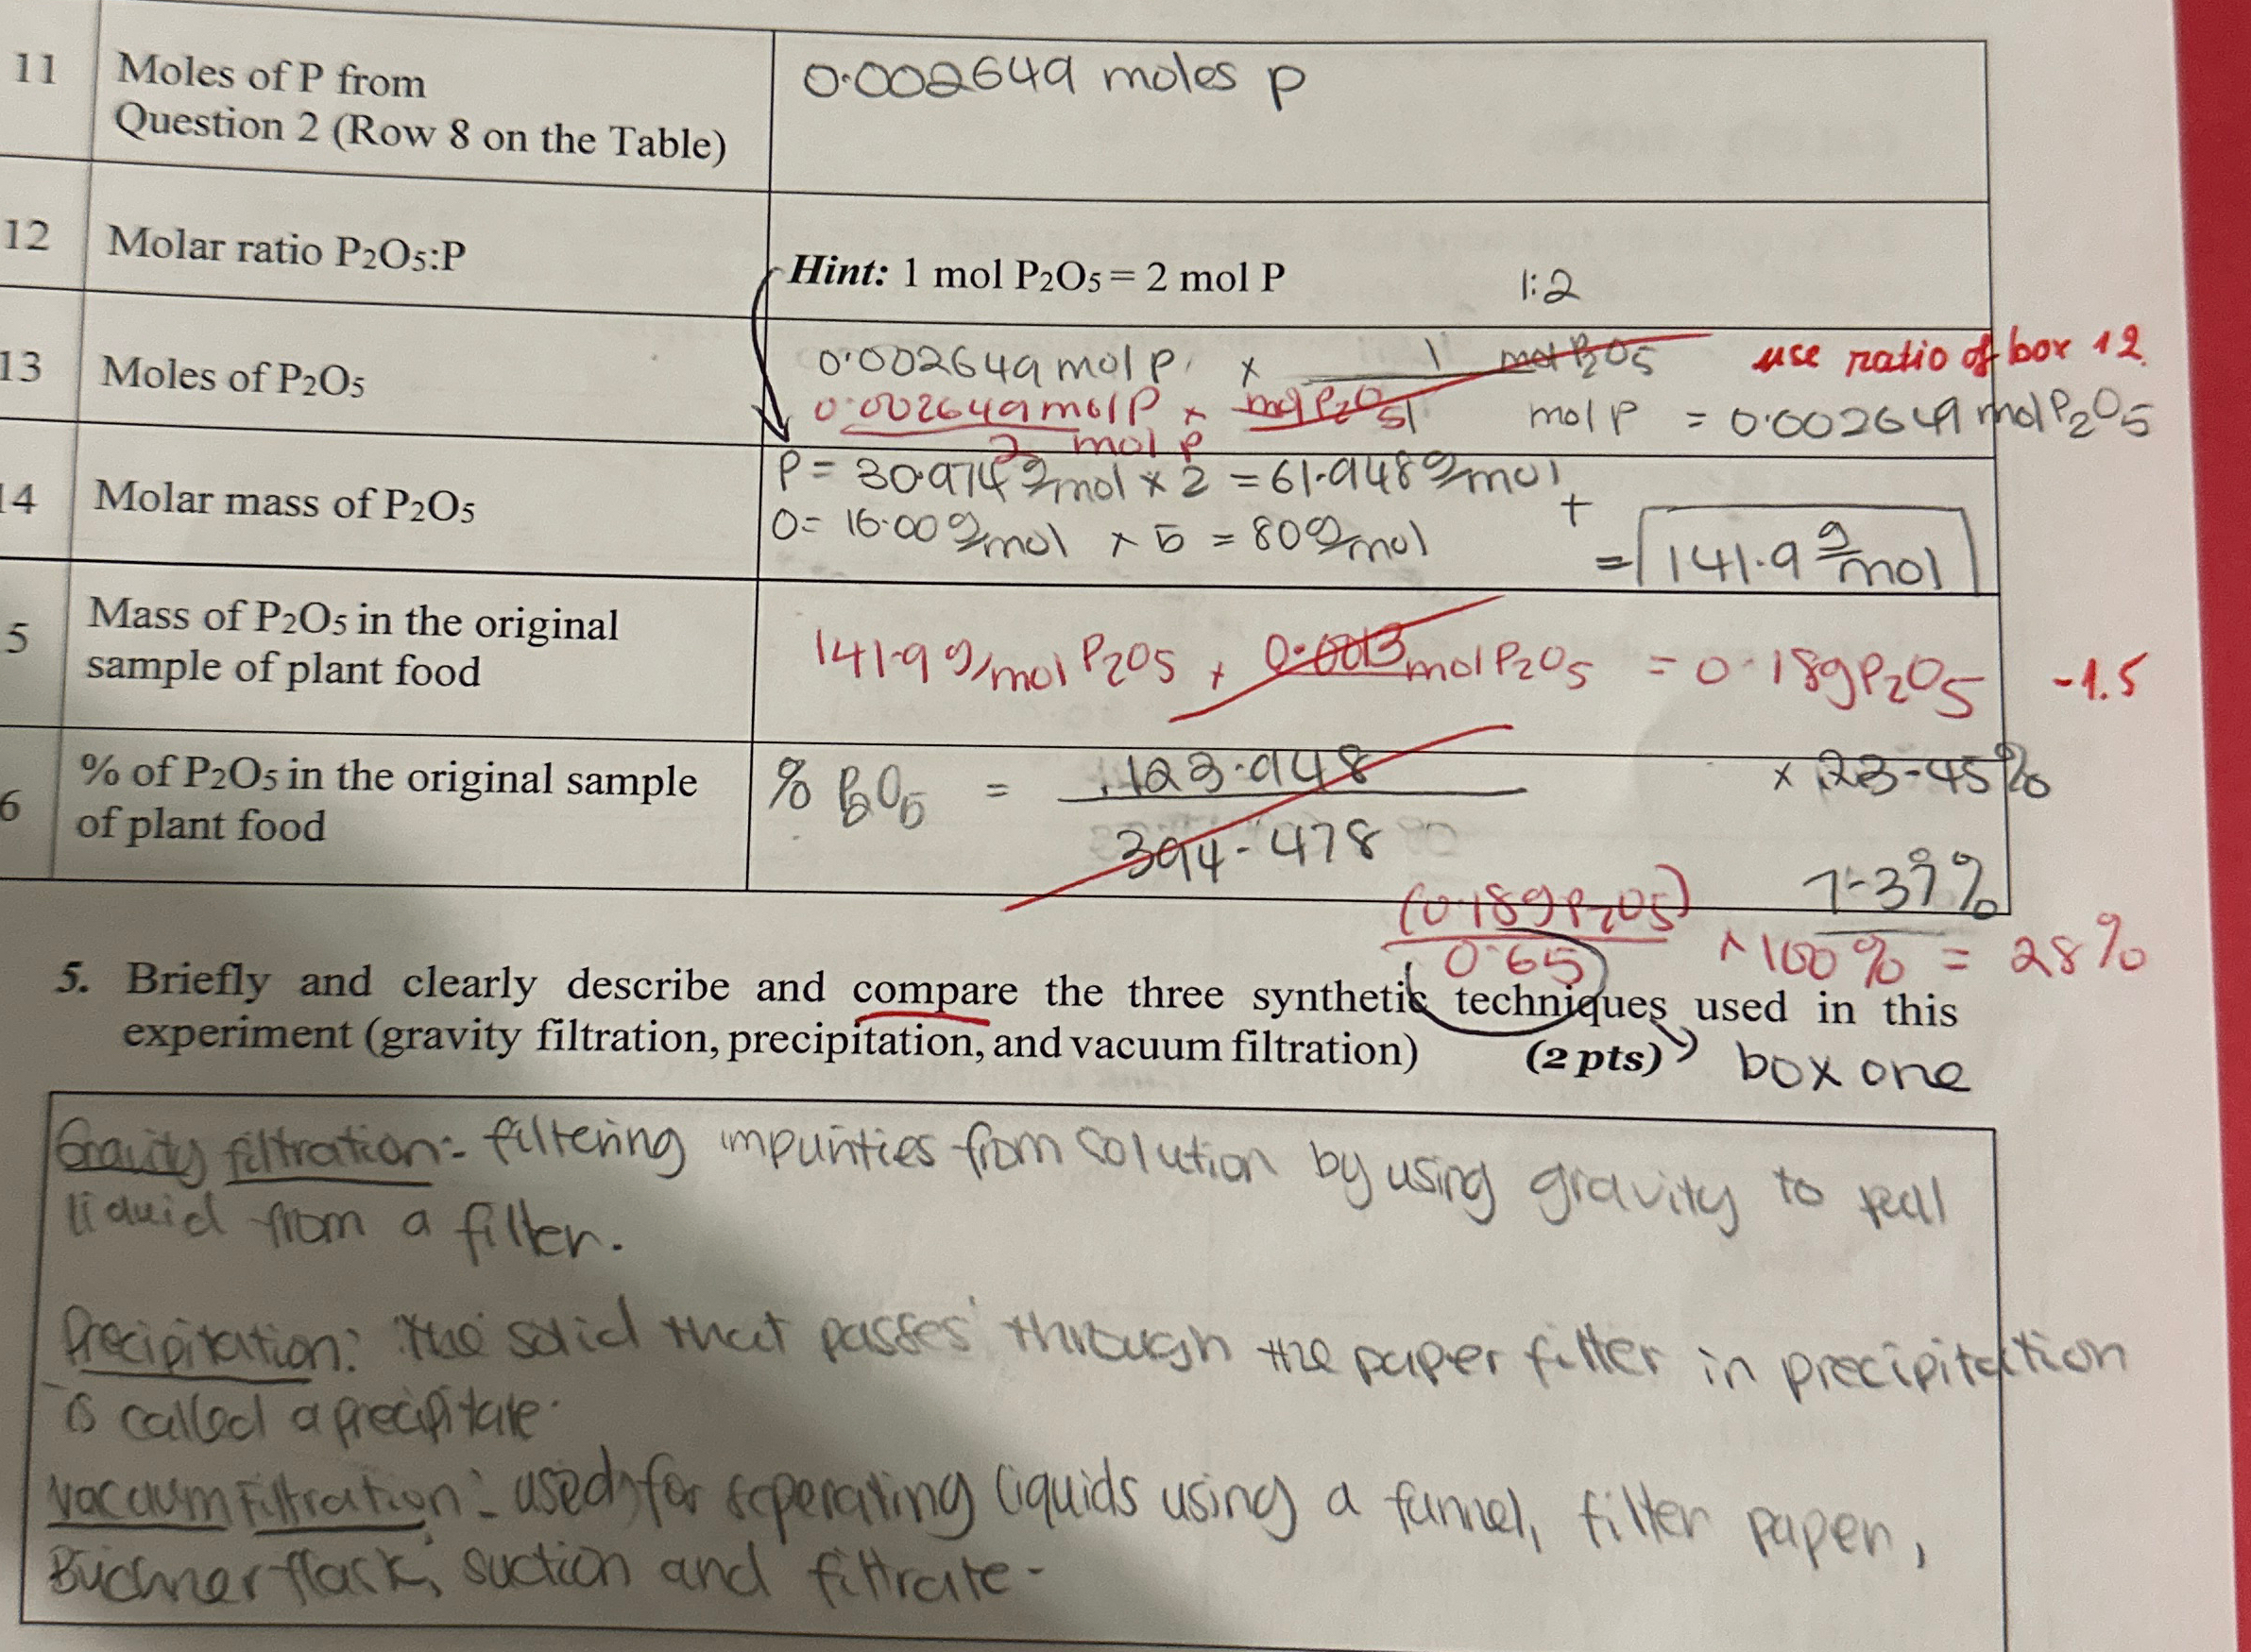 11 Moles of P from 0.002649 moles P
Question 2 (Row 8 on the Table)
12 Molar ratio P2O5:P
Hint: 1 mol P2O5 = 2 mol P 1:2
13 Moles of P2O5 0.002649 mol P × 1 mol P2O5 use ratio of box 12
0.002649 mol P × mol P2O5 mol P = 0.002649 mol P2O5
2 mol P
14 Molar mass of P2O5 P = 30.974 g/mol × 2 = 61.948 g/mol +
O = 16.00 g/mol × 5 = 80 g/mol = 141.9 g/mol
5 Mass of P2O5 in the original
sample of plant food 141.9 g/mol P2O5 × 0.0013 mol P2O5 = 0.18g P2O5 -1.5
6 % of P2O5 in the original sample % P2O5 = 123.948 × 23.45%
of plant food 394.478
7.37%
(0.18g P2O5)
0.65 × 100% = 28%
5. Briefly and clearly describe and compare the three synthetic techniques used in this
experiment (gravity filtration, precipitation, and vacuum filtration) (2 pts) box one
Gravity filtration:- filtering impurities from solution by using gravity to pull
liquid from a filter.
Precipitation: The solid that passes through the paper filter in precipitation
is called a precipitate.
Vacuum filtration:- used for seperating liquids using a funnel, filter paper,
Buchner flask, suction and filtrate.